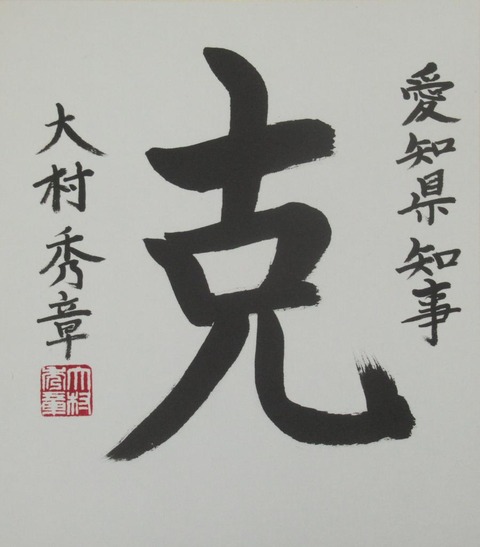 愛知県知事
克
大村秀章
大村
秀章